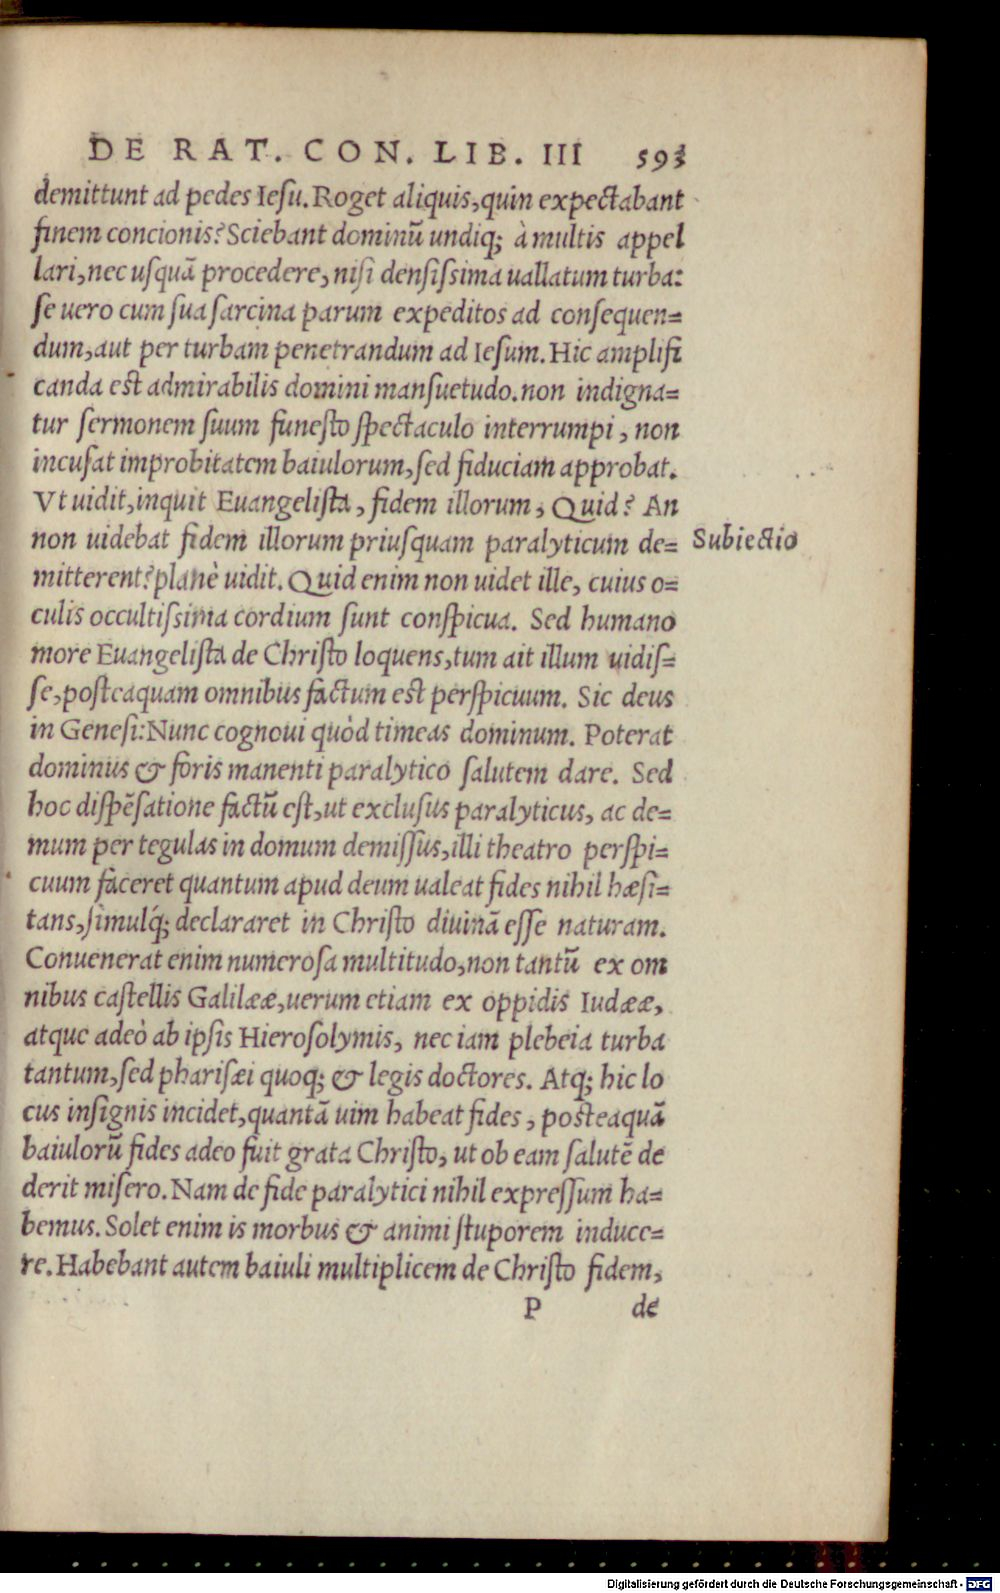 DE RAT. CON. LIB. III 593
demittunt ad pedes Iesu. Roget aliquis, quin expectabant
finem concionis? Sciebant dominũ undiq; à multis appel
lari, nec usquã procedere, nisi densissima uallatum turba:
se uero cum sua sarcina parum expeditos ad consequen=
dum, aut per turbam penetrandum ad Iesum. Hic amplifi
canda est admirabilis domini mansuetudo. non indigna=
tur sermonem suum funesto spectaculo interrumpi, non
incusat improbitatem baiulorum, sed fiduciam approbat.
Vt uidit, inquit Euangelista, fidem illorum, Quid? An
non uidebat fidem illorum priusquam paralyticum de=
Subiectio
mitterent? planè uidit. Quid enim non uidet ille, cuius o=
culis occultissima cordium sunt conspicua. Sed humano
more Euangelista de Christo loquens, tum ait illum uidis=
se, posteaquam omnibus factum est perspicuum. Sic deus
in Genesi: Nunc cognoui quòd timeas dominum. Poterat
dominus & foris manenti paralytico salutem dare. Sed
hoc dispẽsatione factũ est, ut exclusus paralyticus, ac de=
mum per tegulas in domum demissus, illi theatro perspi=
cuum faceret quantum apud deum ualeat fides nihil hæsi=
tans, simulq́; declararet in Christo diuinã esse naturam.
Conuenerat enim numerosa multitudo, non tantũ ex om
nibus castellis Galilææ, uerum etiam ex oppidis Iudææ,
atque adeò ab ipsis Hierosolymis, nec iam plebeia turba
tantum, sed pharisæi quoq; & legis doctores. Atq; hic lo
cus insignis incidet, quantã uim habeat fides, posteaquã
baiulorũ fides adeo fuit grata Christo, ut ob eam salutẽ de
derit misero. Nam de fide paralytici nihil expressum ha=
bemus. Solet enim is morbus & animi stuporem induce=
re. Habebant autem baiuli multiplicem de Christo fidem,
P de
Digitalisierung gefördert durch die Deutsche Forschungsgemeinschaft - DFG